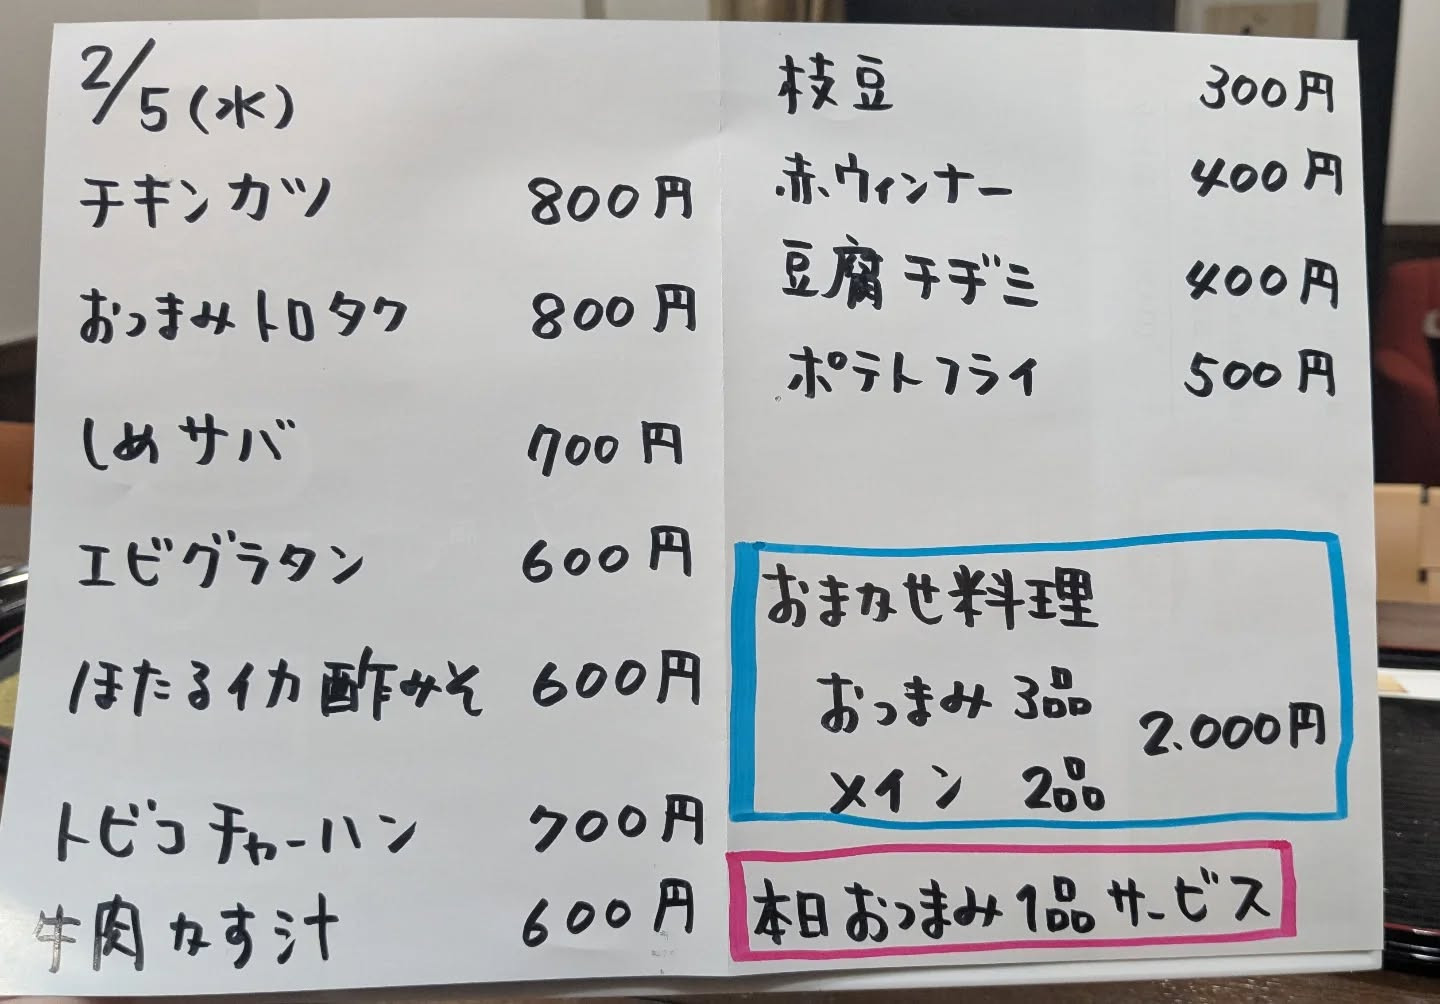 2/5(水)
チキンカツ 800円
おつまみトロタク 800円
しめサバ 700円
エビグラタン 600円
ほたるイカ酢みそ 600円
トビコチャーハン 700円
牛肉かす汁 600円
枝豆 300円
赤ウィンナー 400円
豆腐チヂミ 400円
ポテトフライ 500円
おまかせ料理
おつまみ3品
2.000円
メイン 2品
本日おつまみ1品サービス